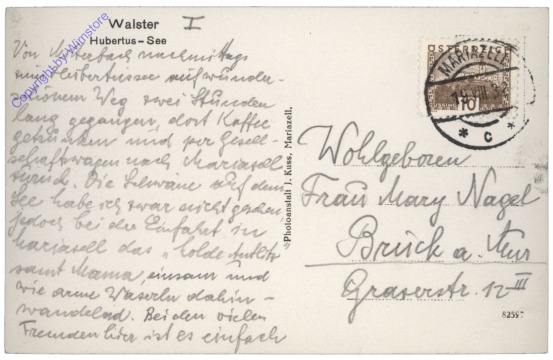 Walster I
Hubertus-See
Von Mitterbach nachmittags
zum Hubertussee auf wunder-
schönem Weg zwei Stunden
lang gegangen, dort Kaffee
getrunken und per Gesell-
schaftswagen nach Mariazell
zurück. Die Schwäne auf dem
See habe ich zwar nicht gesehen,
jedoch bei der Einfahrt in
Mariazell das "holde Antlitz"
samt Mama, einsam und
wie arme Waserln dahin-
wandelnd. Bei den vielen
Fremden hier ist es einfach
Photoanstalt J. Kuss, Mariazell.
ÖSTERREICH
10
MARIAZELL
VIII
* c *
Wohlgeboren
Frau Mary Nagel
Bruck a. Mur
Graserstr. 12 III
82597
Copyright by Wimstore